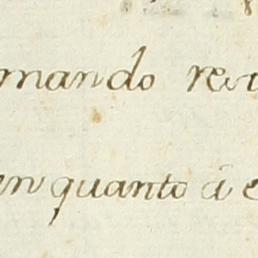 mando re
en quanto á e